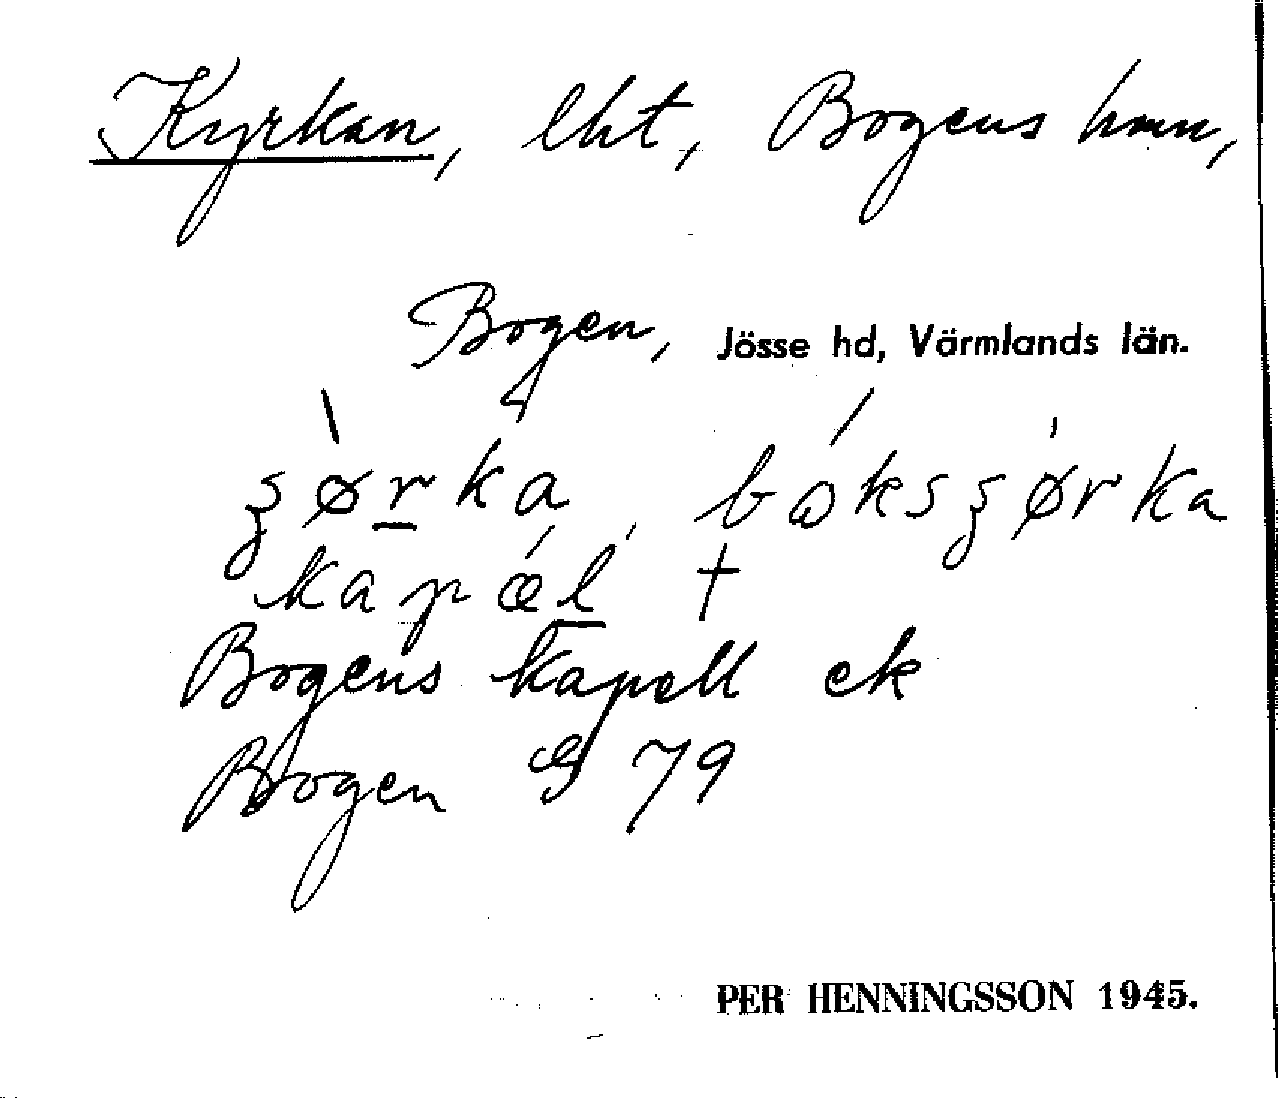 Kyrkan, lht, Bogens hmn,
Bogen, Jösse hd, Värmlands län.
ʂø̀rka, bɷ́ksʂørka
kapǽl †
Bogens kapell ek
Bogen G 79
PER HENNINGSSON 1945.